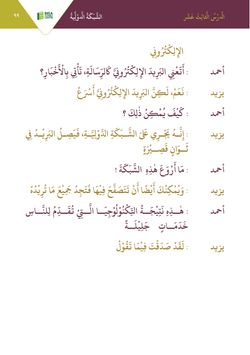 الدَّرْسُ الثَّالِثَ عَشَرَ
الشَّبَكَةُ الدَّوْلِيَّةُ
٩٩
الإِلِكْتُرُونِي
أحمد : أَتَعْنِي البَرِيدَ الإِلِكْتُرُونِيَّ كَالرِّسَالَةِ، تَأْتِي بِالْأَخْبَارِ؟
يزيد : نَعَمْ، لَكِنَّ البَرِيدَ الإِلِكْتُرُونِيَّ أَسْرَعُ
أحمد : كَيْفَ يُمْكِنُ ذَلِكَ ؟
يزيد : إِنَّهُ يَجْرِي عَلَى الشَّبَكَةِ الدَّوْلِيَّةِ، فَيَصِلُ البَرِيْدُ فِي
ثَوَانٍ قَصِيْرَةٍ
أحمد : مَا أَرْوَعَ هَذِهِ الشَّبَكَةَ !
يزيد : وَيُمْكِنُكَ أَيْضًا أَنْ تَتَصَفَّحَ فِيْهَا فَتَجِدُ جَمِيْعَ مَا تُرِيْدُهُ
أحمد : هَـذِهِ نَتِيْجَـةُ التِّكْنُوْلُوْجِيَـا الَّـتِي تُقَـدِّمُ لِلنَّـاسِ
خَدَمَـاتٍ جَلِيْلَـةً
يزيد : لَقَدْ صَدَقْتَ فِيْمَا تَقُوْلُ